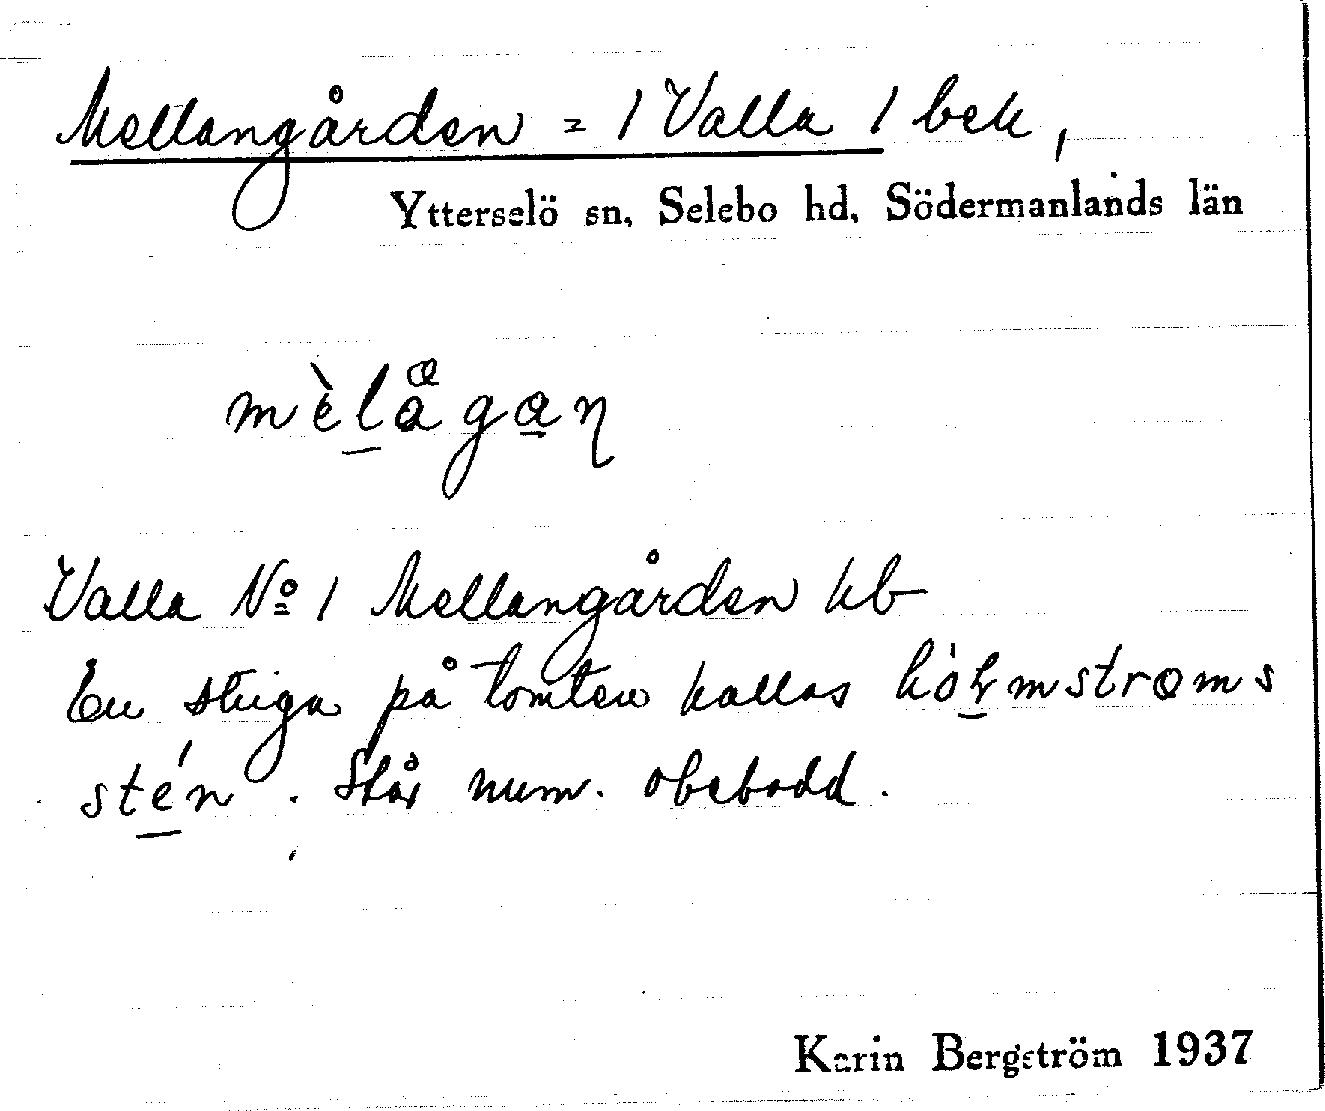 Mellangården = 1 Valla 1 bek,
Ytterselö sn, Selebo hd, Södermanlands län
mèlågan
Valla No 1 Mellangården kb
En stuga på tomten kallas
stén. Står num. obebodd.
Karin Bergström 1937